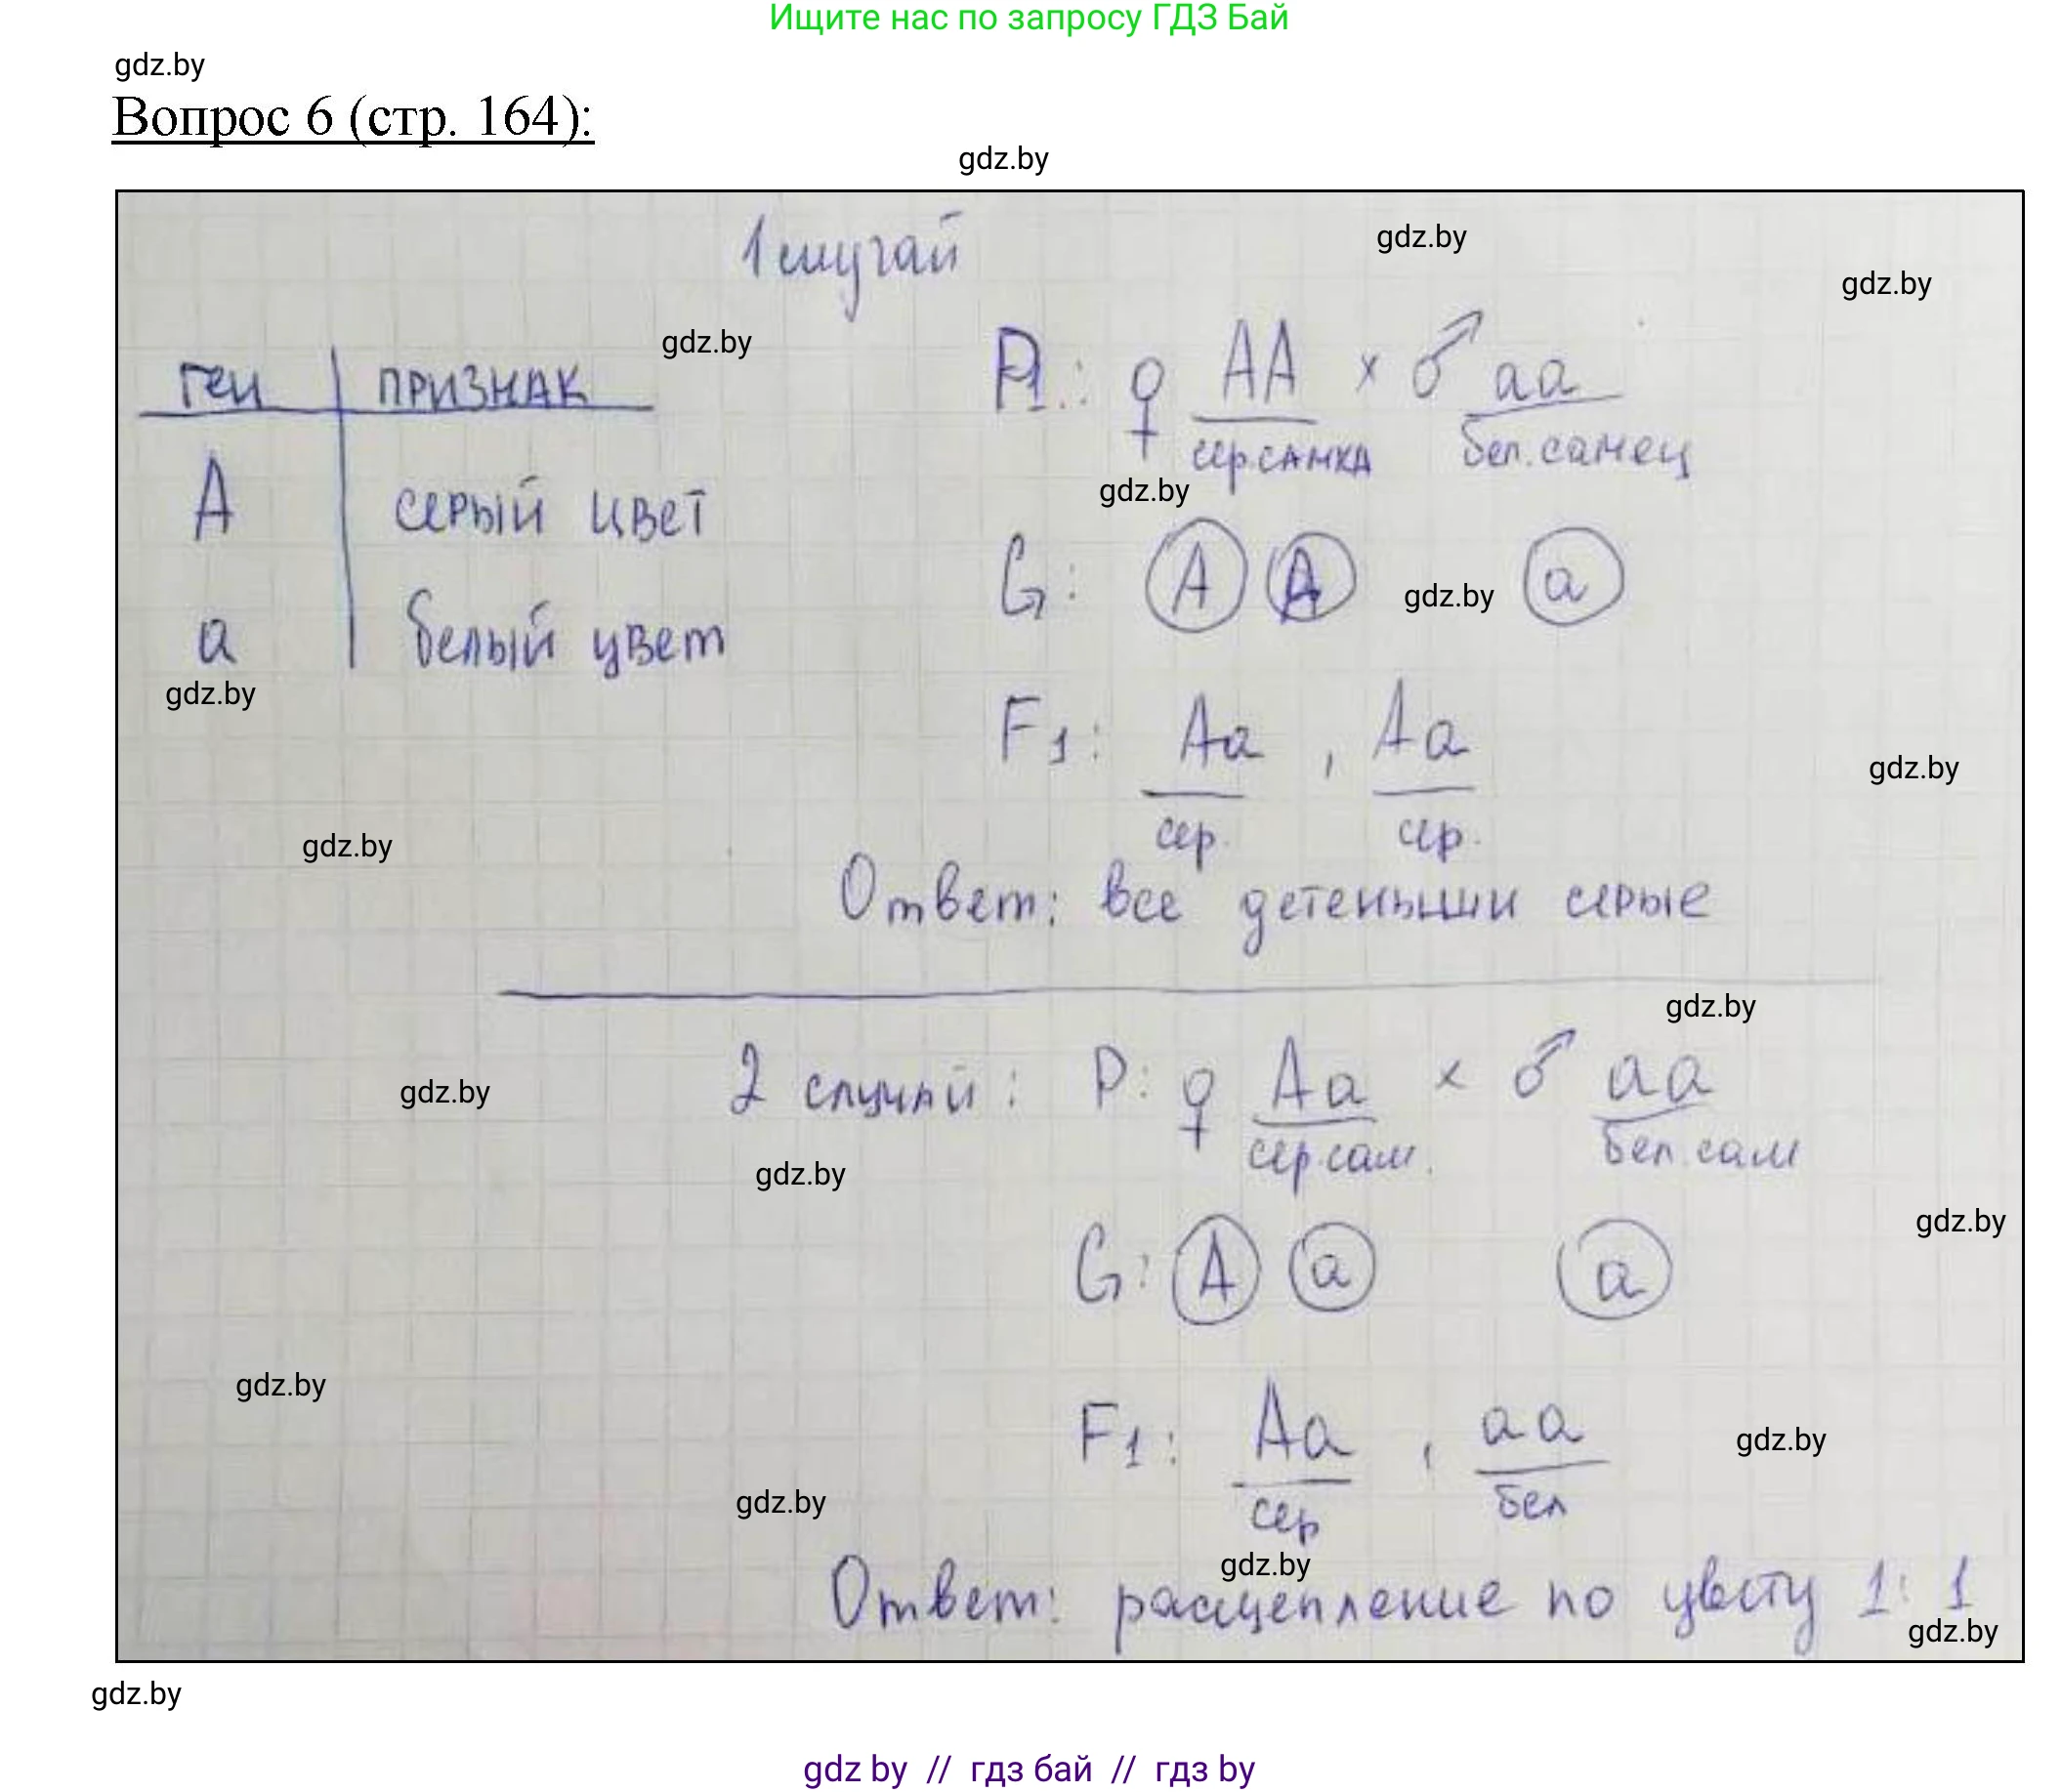 Ищите нас по запросу ГДЗ Бай
gdz.by
Вопрос 6 (стр. 164):
gdz.by
1 случай
gdz.by
gdz.by
gdz.by
ген | признак
P: ♀ AA × ♂ aa
сер.самка бел.самец
gdz.by
A | серый цвет
G: A A a
gdz.by
a | белый цвет
gdz.by
F1: Aa , Aa
gdz.by
сер. сер.
gdz.by
Ответ: все детеныши серые
gdz.by
2 случай: P: ♀ Aa × ♂ aa
gdz.by
сер.сам. бел.сам
gdz.by
gdz.by
G: A a a
gdz.by
F1: Aa , aa
gdz.by
сер бел
gdz.by
gdz.by
Ответ: расщепление по цвету 1:1
gdz.by
gdz.by
gdz by // гдз бай // гдз by